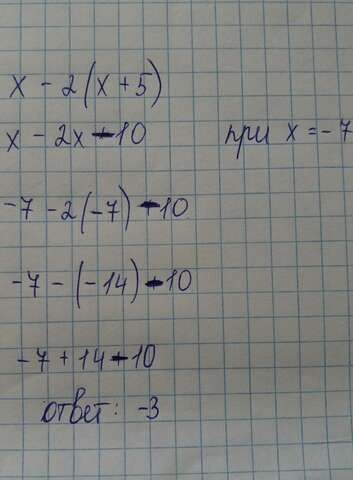 x - 2(x+5)
x - 2x - 10 при x = -7
-7 - 2(-7) - 10
-7 - (-14) - 10
-7 + 14 - 10
ответ: -3